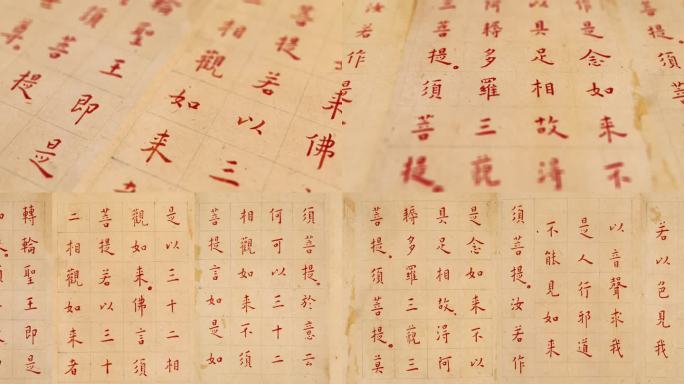 來。佛
菩提若以三
相觀如来
輪聖王即是
須菩提。
莫
須菩
作是念如来不
以具足相故得
耨多羅三藐
菩提。須菩提。
汝若作
若以色見我
以音聲求我
是人行邪道
不能見如来
須菩提。汝若作
是念如来不以
具足相故得阿
耨多羅三藐三
菩提。須菩提。莫
須菩提。於意云
何可以三十二
相觀如来不須
菩提言如是如
是以三十二相
觀如来。佛言須
菩提若以三十
二相觀如来者
轉輪聖王即是